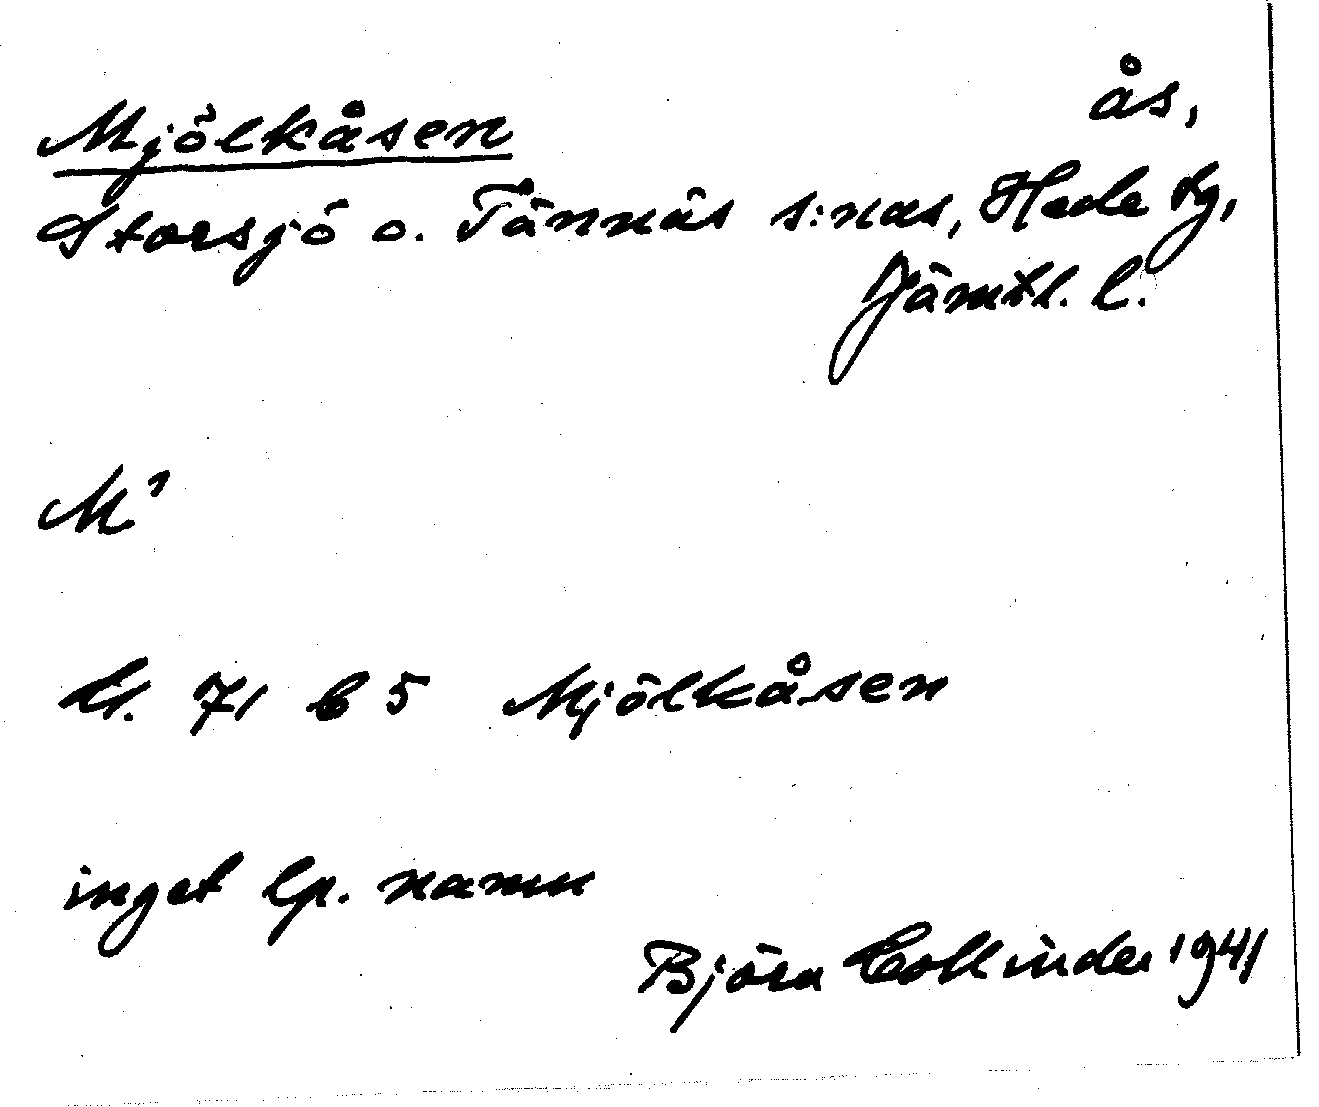 Mjölkåsen ås,
Storsjö o. Tännäs s:nar, Hede tg,
Jämtl. l.
M¹
kt. 71 b 5 Mjölkåsen
inget lp. namn
Björn Collinder 1941